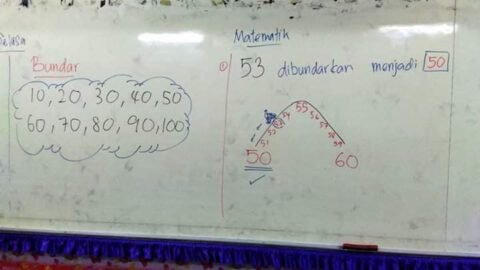 Selasa
Bundar
10, 20, 30, 40, 50
60, 70, 80, 90, 100
Matematik
① 53 dibundarkan menjadi 50
50
51
52
53
54
55
56
57
58
59
60